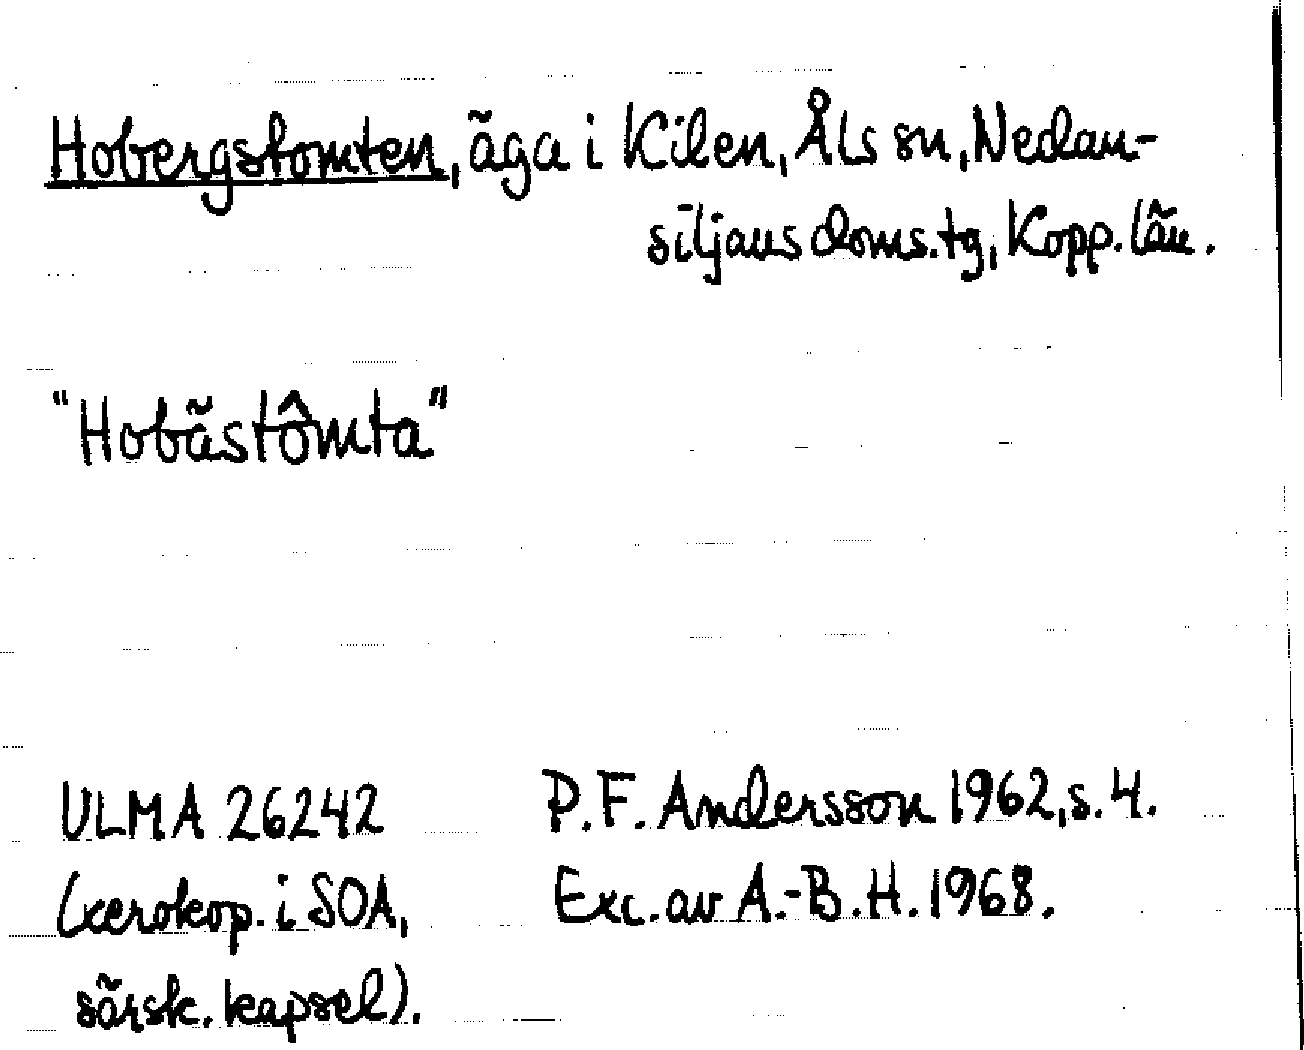 Hobergstomten, äga i Kilen, Åls sn, Nedan-
siljans doms.tg, Kopp. län.
"Hobästômta"
ULMA 26242
(xerokop. i SOA,
särsk. kapsel).
P.F. Andersson 1962, s. 4.
Exc. av A.-B.H. 1968.